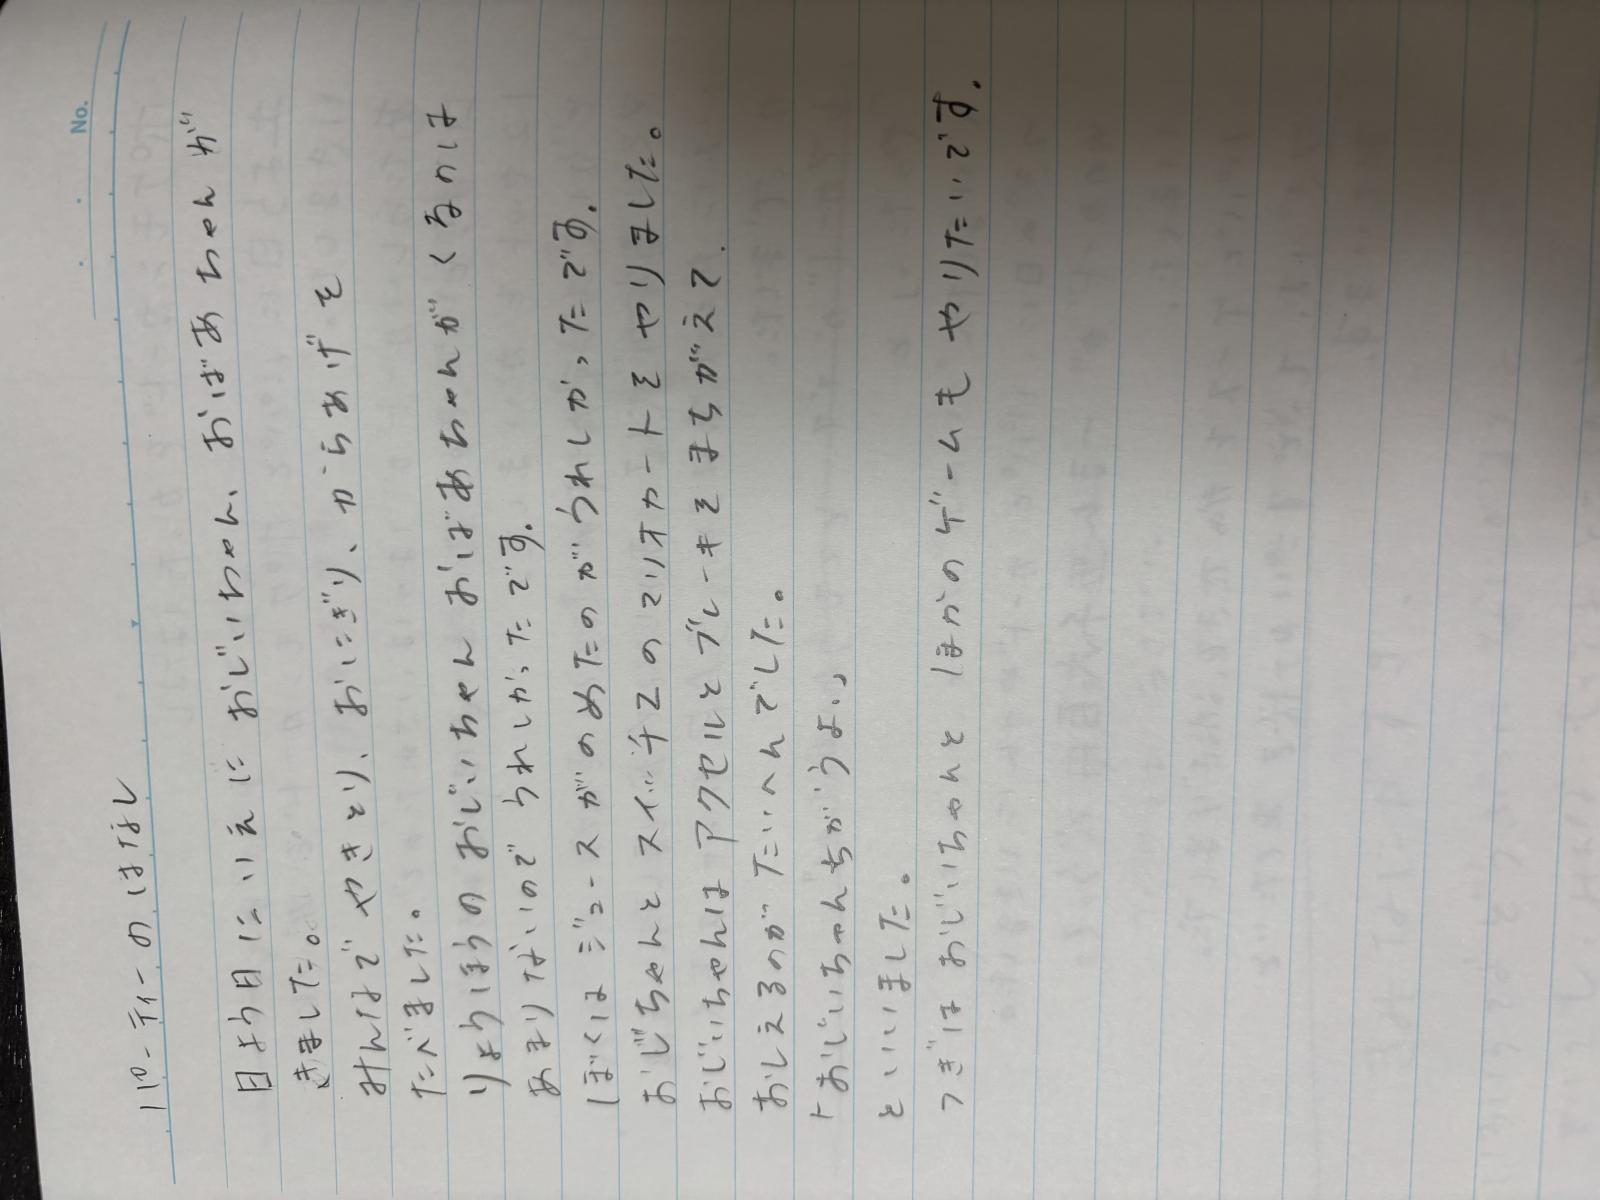 No.
パーティーのはなし
日よう日にいえにおじいちゃん、おばあちゃんが
きました。
みんなでやきとり、おにぎり、からあげを
たべました。
りょうほうのおじいちゃんおばあちゃんがくるのは
あまりないのでうれしかったです.
ぼくはジュースがのめたのがうれしかったです.
おじちゃんとスイッチ2のマリオカートをやりました。
おじいちゃんはアクセルとブレーキをまちがえて.
おしえるのがたいへんでした。
「おじいちゃんちがうよ、」
といいました。
つぎはおじいちゃんとほかのゲームもやりたいです.